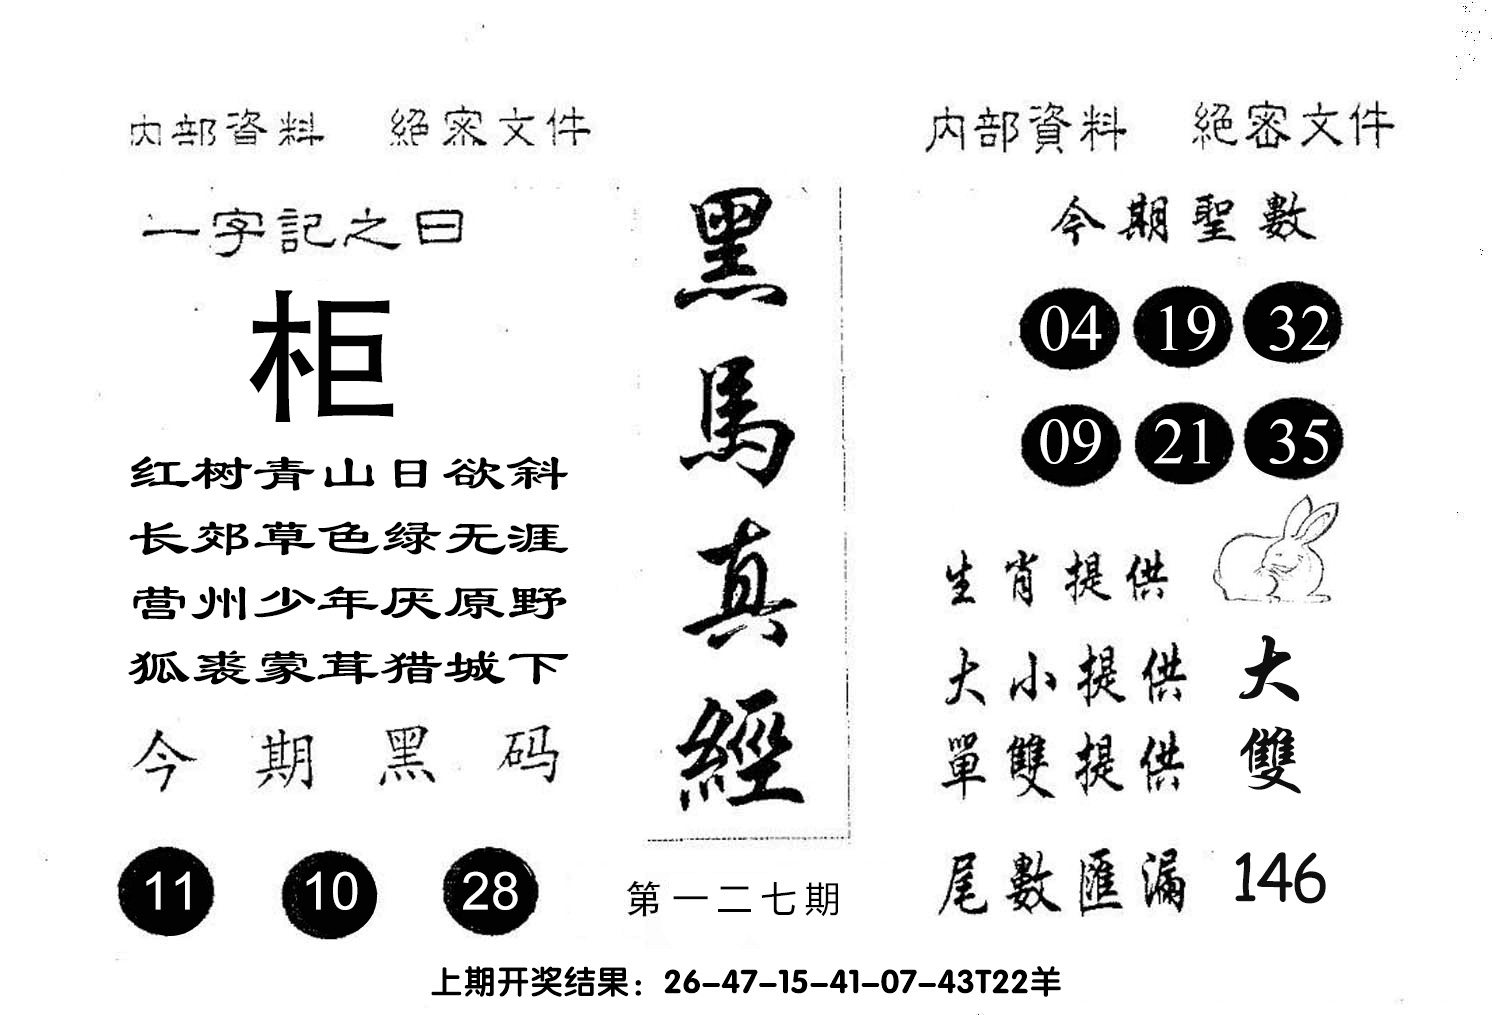 内部資料 絕密文件
一字記之曰
柜
红树青山日欲斜
长郊草色绿无涯
营州少年厌原野
狐裘蒙茸猎城下
今期黑码
11 10 28
黑馬真經
第一二七期
内部資料 絕密文件
今期聖數
04 19 32
09 21 35
生肖提供
大小提供 大
單雙提供 雙
尾數匯漏 146
上期开奖结果：26-47-15-41-07-43T22羊